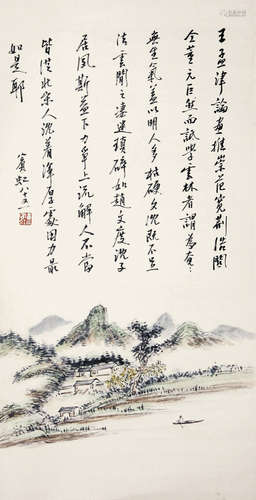 王孟津論畫推崇范寬荊浩關
仝董元巨然而詆學雲林者謂為奄奄
無生氣蓋以明人多枯硬文沈既不足
法雲間之瑣碎如趙文度沈子
居風斯益下力爭上流解人不當
皆從北宋人沈着渾厚處用力最
如是耶
賓虹